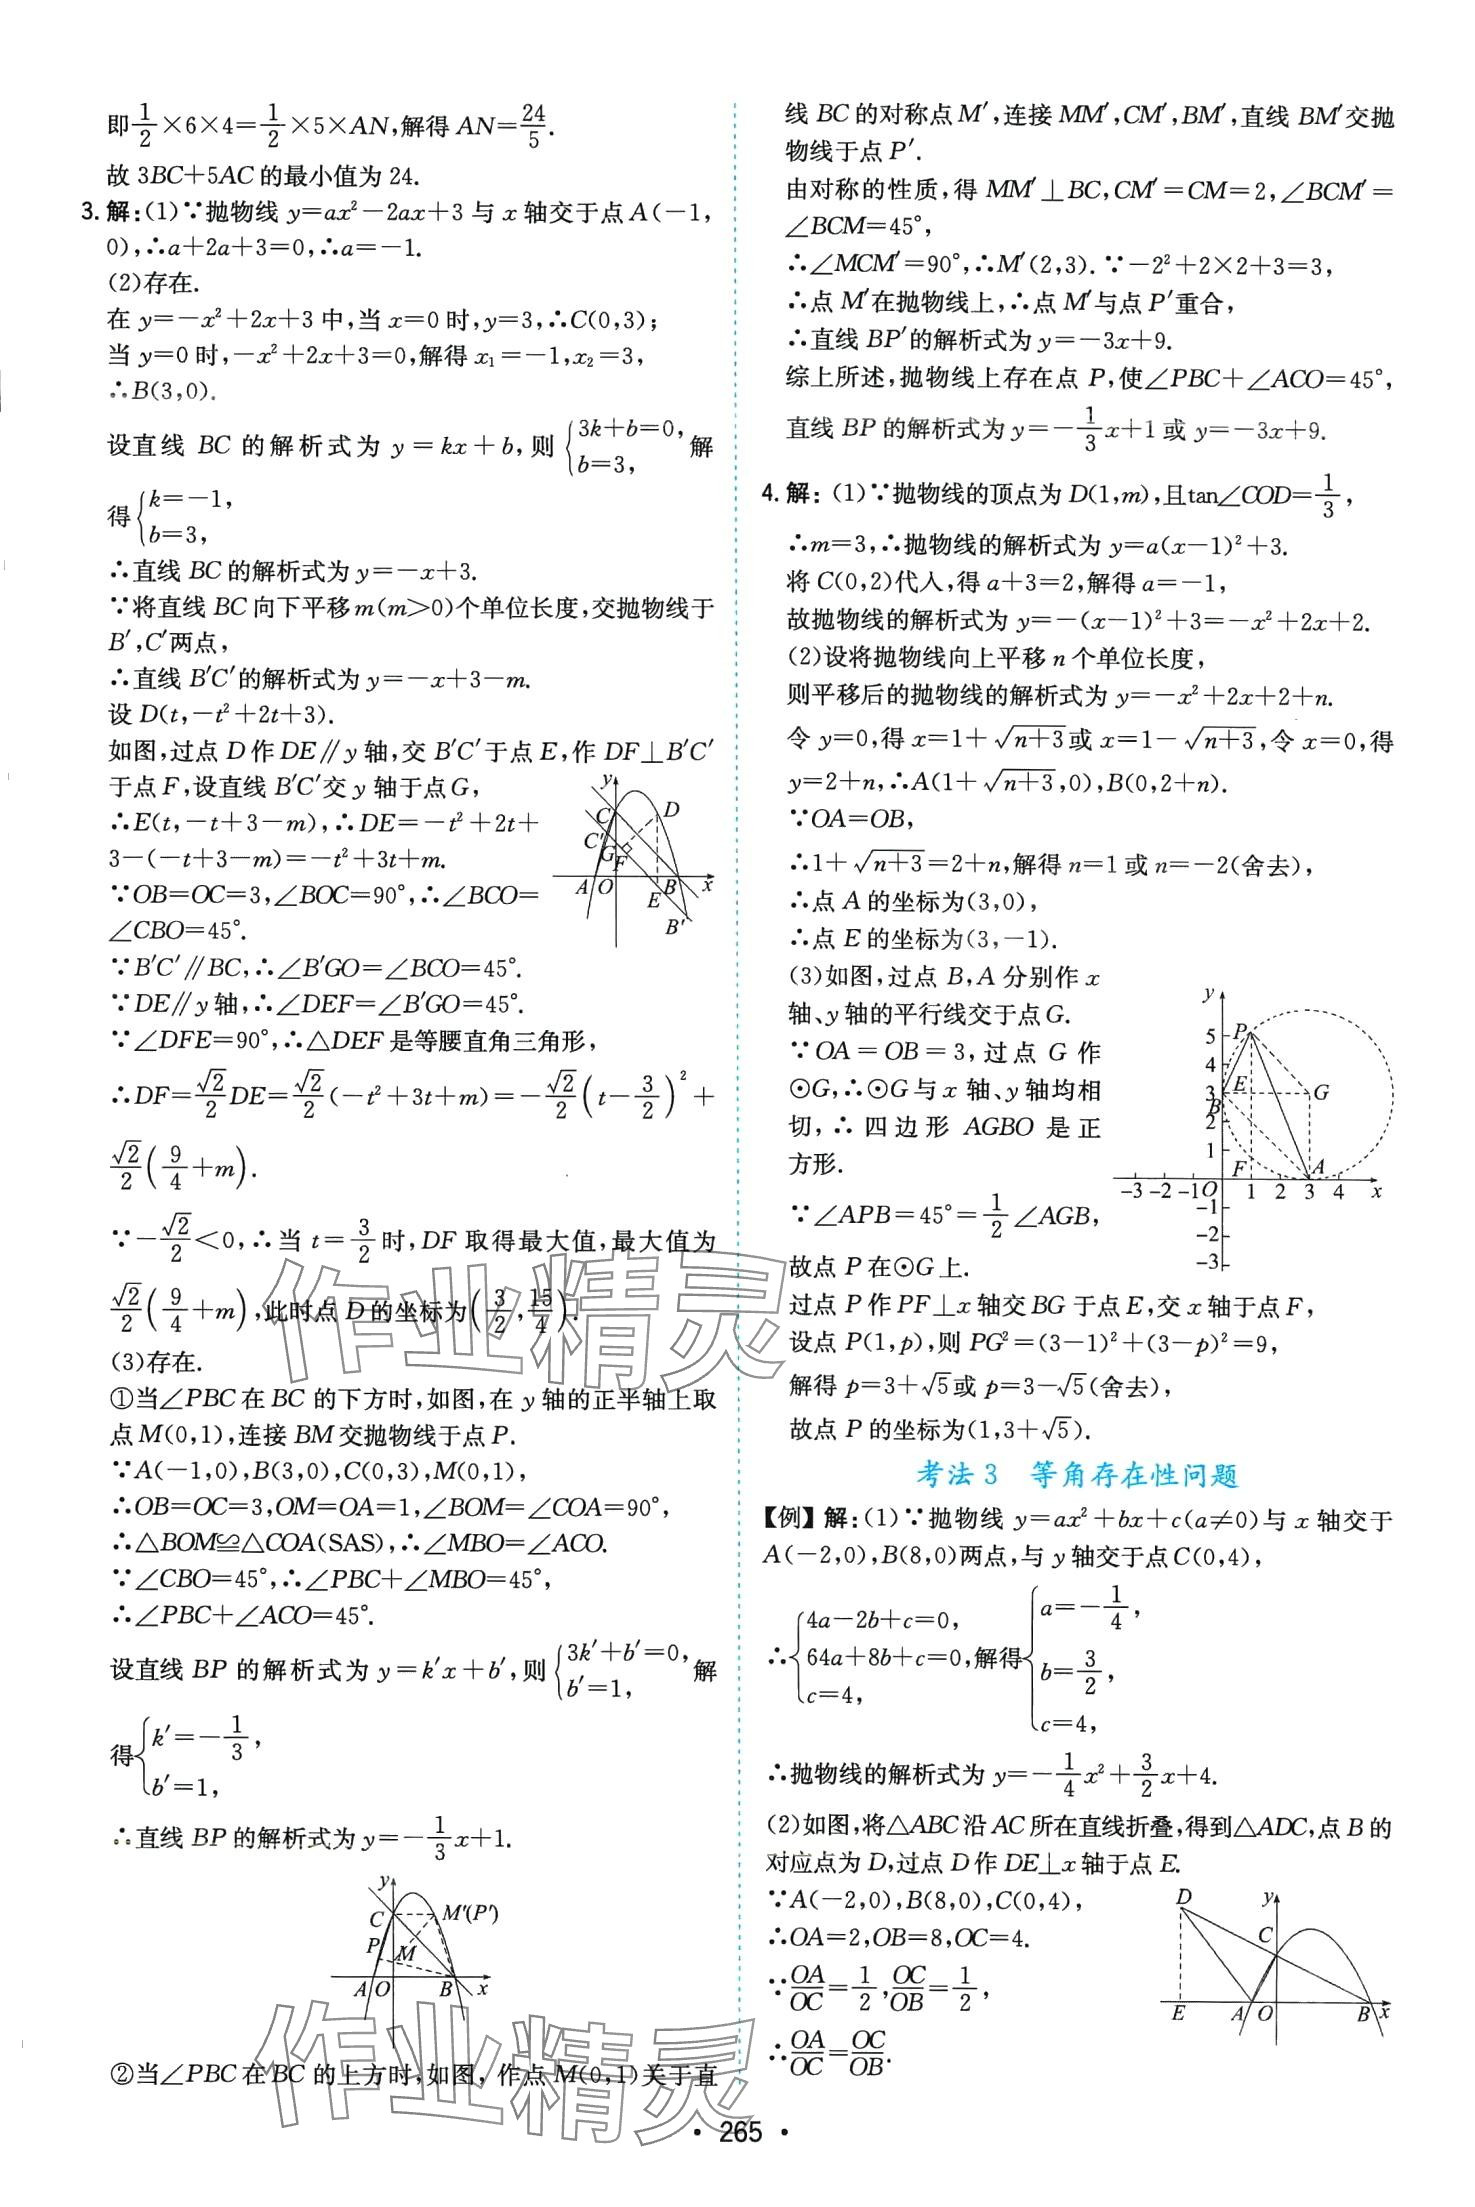 即1/2×6×4=1/2×5×AN,解得 AN=24/5.
故 3BC+5AC 的最小值为 24.
3. 解:(1)∵抛物线 y=ax²-2ax+3 与 x 轴交于点 A(-1,
0),∴a+2a+3=0,∴a=-1.
(2)存在.
在 y=-x²+2x+3 中,当 x=0 时,y=3,∴C(0,3);
当 y=0 时,-x²+2x+3=0,解得 x₁=-1,x₂=3,
∴B(3,0).
设直线 BC 的解析式为 y=kx+b,则{3k+b=0, b=3, 解
得{k=-1, b=3,
∴直线 BC 的解析式为 y=-x+3.
∵将直线 BC 向下平移 m(m>0)个单位长度,交抛物线于
B′,C′两点,
∴直线 B′C′的解析式为 y=-x+3-m.
设 D(t,-t²+2t+3).
如图,过点 D 作 DE∥y 轴,交 B′C′于点 E,作 DF⊥B′C′
于点 F,设直线 B′C′交 y 轴于点 G,
∴E(t,-t+3-m),∴DE=-t²+2t+
3-(-t+3-m)=-t²+3t+m.
∵OB=OC=3,∠BOC=90°,∴∠BCO=
∠CBO=45°.
y C D C′ G F A O B x E B′
∵B′C′∥BC,∴∠B′GO=∠BCO=45°.
∵DE∥y 轴,∴∠DEF=∠B′GO=45°.
∵∠DFE=90°,∴△DEF 是等腰直角三角形,
∴DF=√2/2 DE=√2/2(-t²+3t+m)=-√2/2(t-3/2)²+
√2/2(9/4+m).
∵-√2/2<0,∴当 t=3/2时,DF 取得最大值,最大值为
√2/2(9/4+m),此时点 D 的坐标为(3/2,15/4).
(3)存在.
①当∠PBC 在 BC 的下方时,如图,在 y 轴的正半轴上取
点 M(0,1),连接 BM 交抛物线于点 P.
∵A(-1,0),B(3,0),C(0,3),M(0,1),
∴OB=OC=3,OM=OA=1,∠BOM=∠COA=90°,
∴△BOM≌△COA(SAS),∴∠MBO=∠ACO.
∵∠CBO=45°,∴∠PBC+∠MBO=45°,
∴∠PBC+∠ACO=45°.
设直线 BP 的解析式为 y=k′x+b′,则{3k′+b′=0, b′=1, 解
得{k′=-1/3, b′=1,
∴直线 BP 的解析式为 y=-1/3x+1.
y C M′(P′) P M A O B x
②当∠PBC 在 BC 的上方时,如图,作点 M(0,1)关于直
线 BC 的对称点 M′,连接 MM′,CM′,BM′,直线 BM′交抛
物线于点 P′.
由对称的性质,得 MM′⊥BC,CM′=CM=2,∠BCM′=
∠BCM=45°,
∴∠MCM′=90°,∴M′(2,3).∵-2²+2×2+3=3,
∴点 M′在抛物线上,∴点 M′与点 P′重合,
∴直线 BP′的解析式为 y=-3x+9.
综上所述,抛物线上存在点 P,使∠PBC+∠ACO=45°,
直线 BP 的解析式为 y=-1/3x+1 或 y=-3x+9.
4. 解:(1)∵抛物线的顶点为 D(1,m),且tan∠COD=1/3,
∴m=3,∴抛物线的解析式为 y=a(x-1)²+3.
将 C(0,2)代入,得 a+3=2,解得 a=-1,
故抛物线的解析式为 y=-(x-1)²+3=-x²+2x+2.
(2)设将抛物线向上平移 n 个单位长度,
则平移后的抛物线的解析式为 y=-x²+2x+2+n.
令 y=0,得 x=1+√(n+3)或 x=1-√(n+3),令 x=0,得
y=2+n,∴A(1+√(n+3),0),B(0,2+n).
∵OA=OB,
∴1+√(n+3)=2+n,解得 n=1 或 n=-2(舍去),
∴点 A 的坐标为(3,0),
∴点 E 的坐标为(3,-1).
(3)如图,过点 B,A 分别作 x
轴、y 轴的平行线交于点 G.
∵OA=OB=3,过点 G 作
⊙G,∴⊙G 与 x 轴、y 轴均相
切,∴四边形 AGBO 是正
方形.
∵∠APB=45°=1/2∠AGB,
故点 P 在⊙G 上.
y 5 4 3 2 1 P E G B F A -3 -2 -1 O 1 2 3 4 x -1 -2 -3
过点 P 作 PF⊥x 轴交 BG 于点 E,交 x 轴于点 F,
设点 P(1,p),则 PG²=(3-1)²+(3-p)²=9,
解得 p=3+√5或 p=3-√5(舍去),
故点 P 的坐标为(1,3+√5).
考法 3 等角存在性问题
【例】解:(1)∵抛物线 y=ax²+bx+c(a≠0)与 x 轴交于
A(-2,0),B(8,0)两点,与 y 轴交于点 C(0,4),
∴{4a-2b+c=0, 64a+8b+c=0, c=4, 解得{a=-1/4, b=3/2, c=4,
∴抛物线的解析式为 y=-1/4x²+3/2x+4.
(2)如图,将△ABC 沿 AC 所在直线折叠,得到△ADC,点 B 的
对应点为 D,过点 D 作 DE⊥x 轴于点 E.
∵A(-2,0),B(8,0),C(0,4),
∴OA=2,OB=8,OC=4.
∵OA/OC=1/2,OC/OB=1/2,
∴OA/OC=OC/OB.
D y C E A O B x
作业精灵
作业精灵
· 265 ·